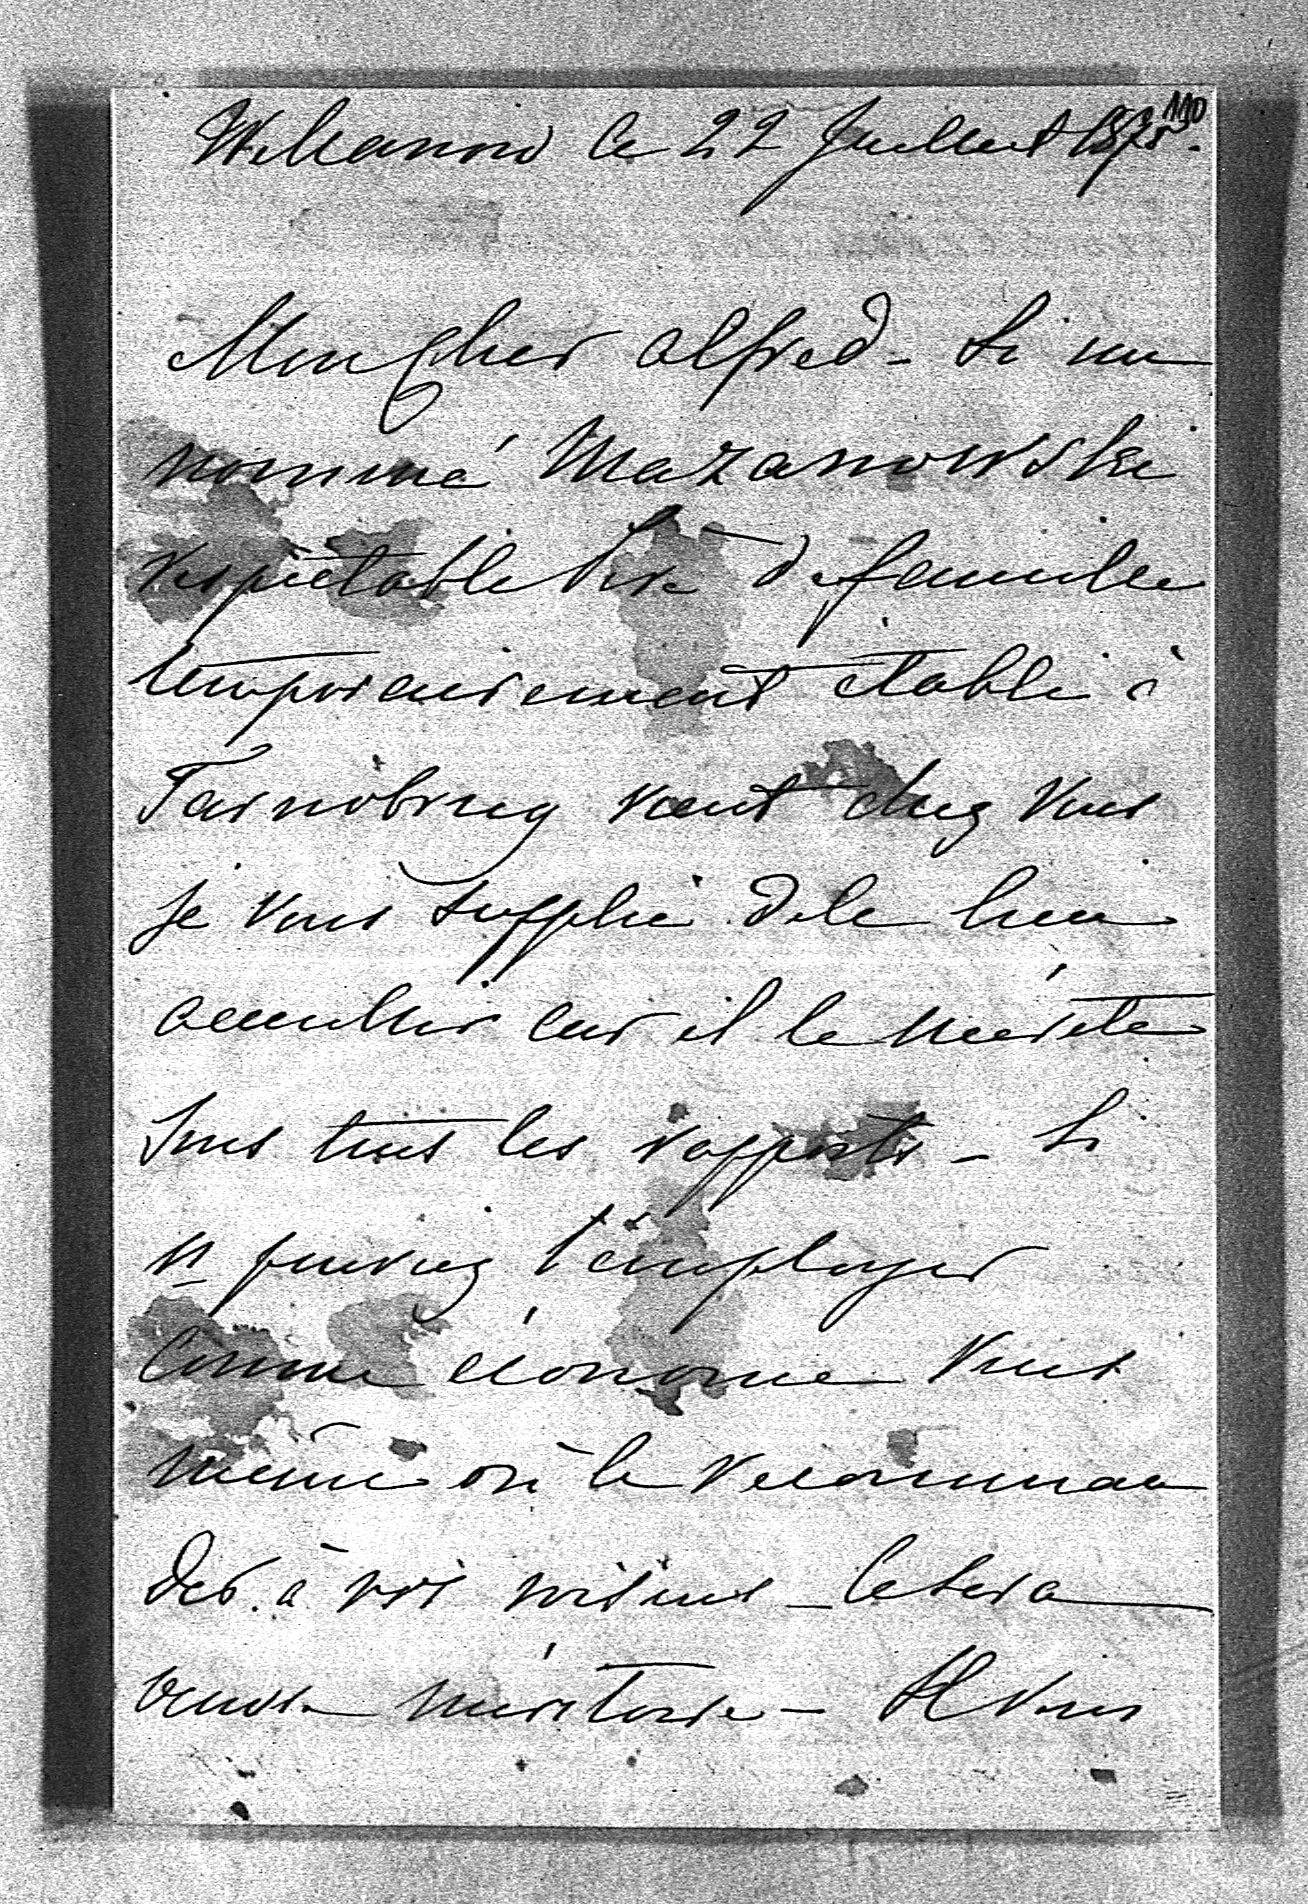 110
Willanow le 22 Juillet 1875.
Mon Cher Alfred – Si un
nommé Mazanowski
respectable Père de famille
temporairement établi à
Tarnobrzeg vient chez vous
je vous supplie de le bien
accueillir car il le mérite
sous tous les rapports – Si
vs pouviez l'employer
comme économe vous
même où le recomman
der à vos voisins – Ce sera
œuvre méritoire – Il vous